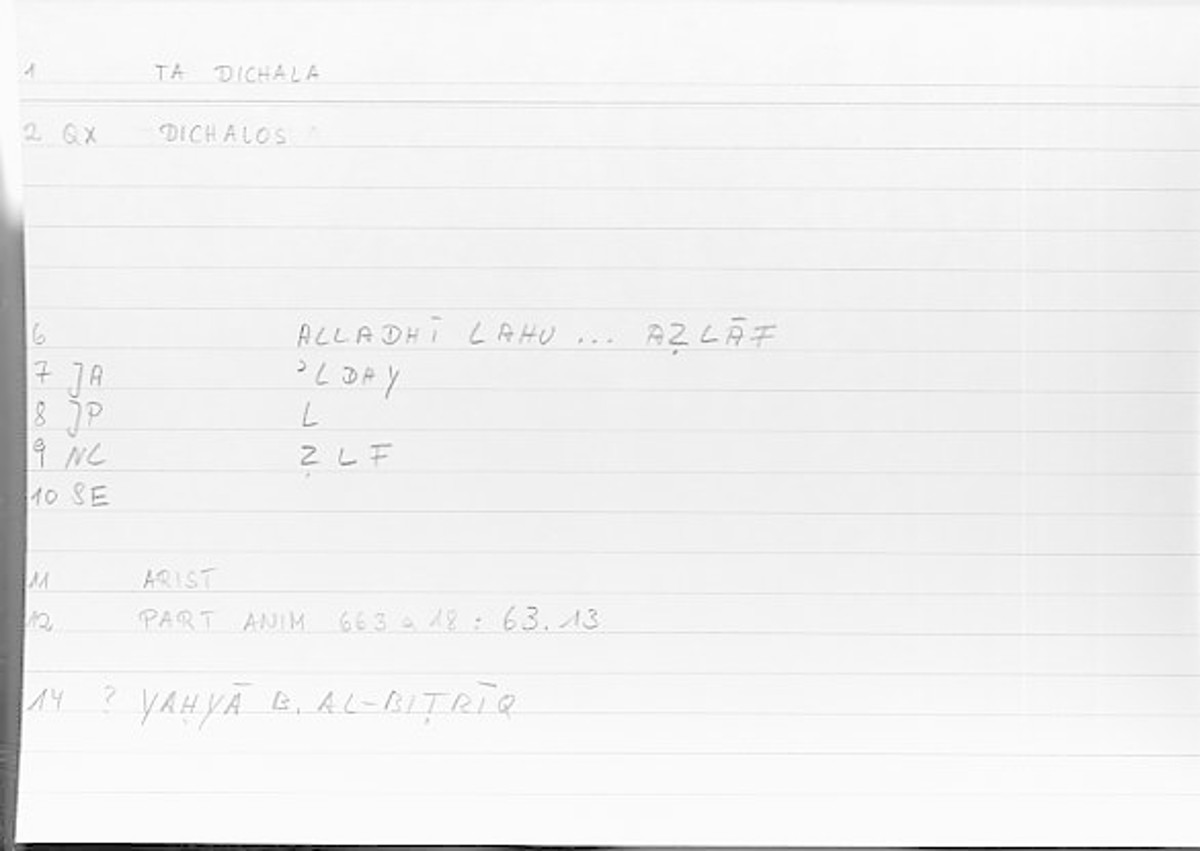 1 TA DICHALA
2 QX DICHALOS
6 ALLADHĪ LAHU ... AẒLĀF
7 JA ʾLDAY
8 JP L
9 NC ẒLF
10 SE
11 ARIST
12 PART ANIM 663 a 18 : 63.13
14 ? YAḤYĀ B. AL-BIṬRĪQ